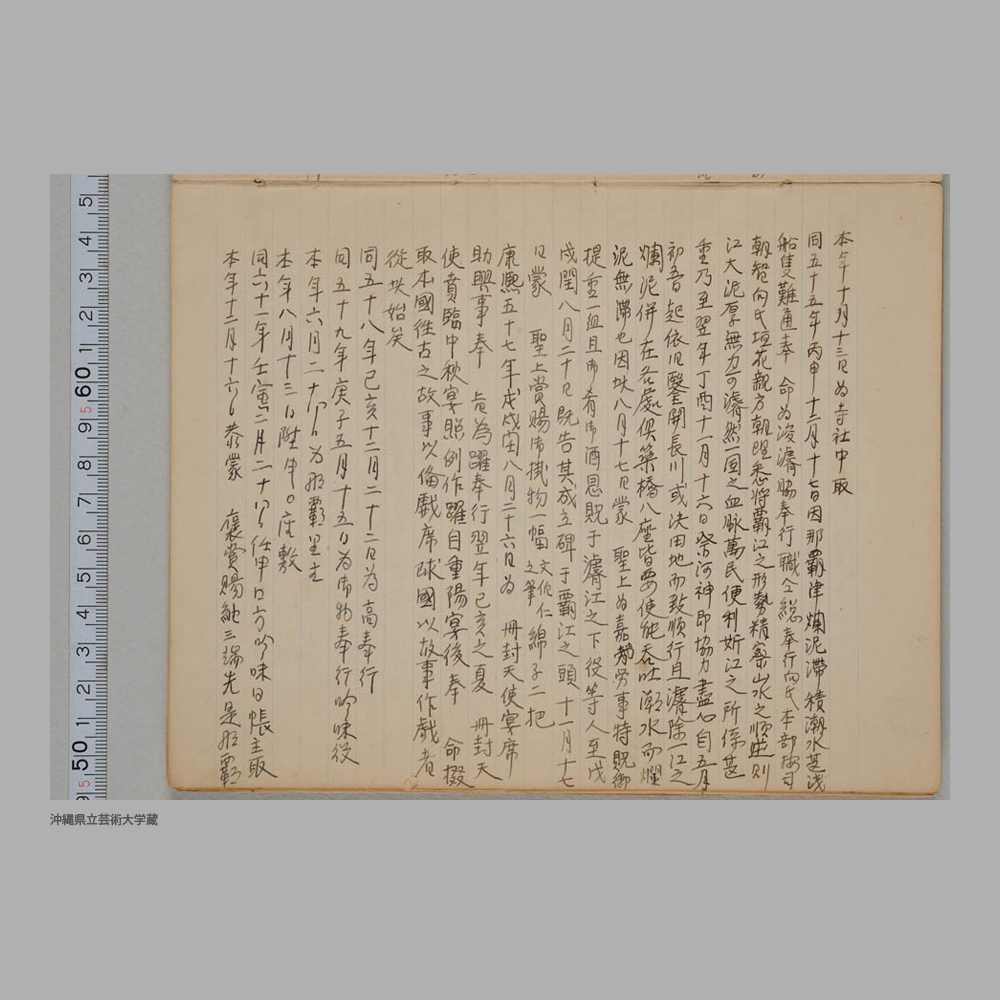 本年十月十三日為寺社中取
同五十五年丙申十二月十七日因那覇津爛泥滞積潮水甚浅
船隻難通奉 命為浚濬賜奉行職令総奉行向氏本部按司
朝智向氏垣花親方朝理悉将覇江之形勢精察山水之順逆則
江大泥厚無力可濬然一国之血脉萬民便利斯江之所係甚
重乃至翌年丁酉十一月十六日祭河神即協力盡心自五月
初吾起依旧鑿開長川或决田地而致順行且濬除一江之
爛泥併在各處倶築橋八座皆要使能呑吐潮水而爛
泥無滞也因此八月十七日蒙 聖上為嘉勞事特貺御
提重一皿且御肴御酒恩貺于濬江之下役等人至戊
戌閏八月二十日既告其成立碑于覇江之頭十一月十七
日蒙 聖上賞賜御掛物一幅之筆綿子二把
康熙五十七年戊戌閏八月二十六日為 冊封天使宴席
助興事奉 旨為躍奉行翌年己亥之夏 冊封天
使賁臨中秋宴照例作躍自重陽宴後奉 命掇
取本國徃古之故事以俻戯席球國以故事作戯者
従此始矣
同五十八年己亥十二月二十二日為高奉行
同五十九年庚子五月十五日為御物奉行吟味役
本年六月二十八日為那覇里主
本年八月十三日陞申口座敷
同六十一年壬寅二月二十八日任申口方吟味日帳主取
本年十二月十六日恭蒙 褒賞賜紬三端先是那覇
5
4
3
2
1
60
5
9
8
7
6
5
4
3
2
1
50
5
9
沖縄県立芸術大学蔵